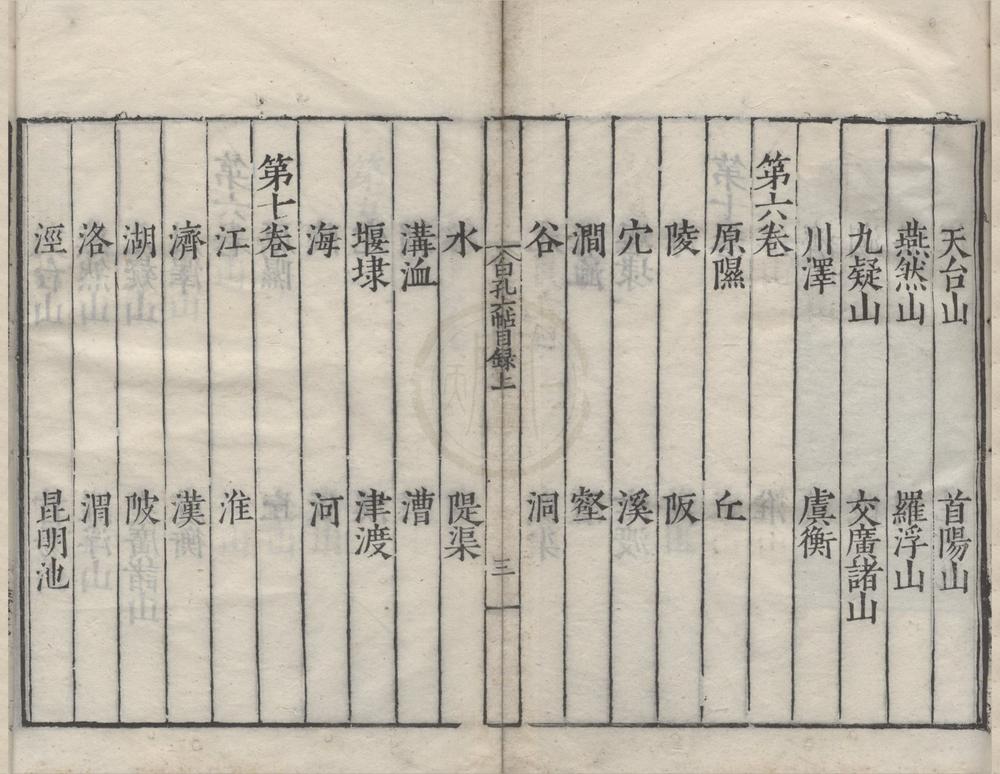 天台山　首陽山
燕然山　羅浮山
九疑山　交廣諸山
川澤　虞衡
第六卷
原隰　丘
陵　阪
穴　溪
澗　壑
谷　洞
白孔六帖目録上　三
水　隄渠
溝洫　漕
堰埭　津渡
海　河
第七卷
江　淮
濟　漢
湖　陂
洛　渭
涇　昆明池